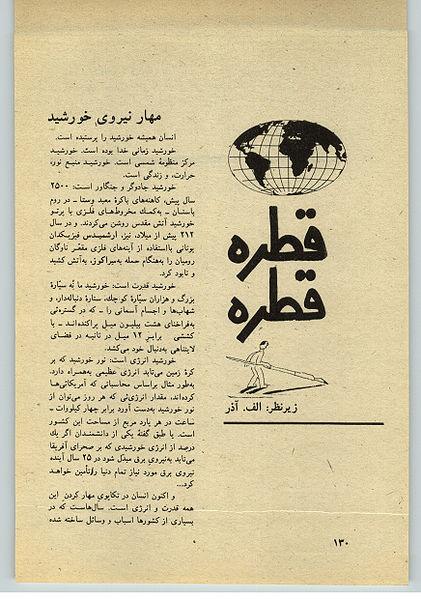 قطره
قطره
زیرنظر: الف. آذر
مهار نیروی خورشید
انسان همیشه خورشید را پرستیده است.
خورشید زمانی خدا بوده است. خورشید
مرکز منظومهٔ شمسی است. خورشید منبع نور،
حرارت، و زندگی است.
خورشید جادوگر و جنگاور است: ۲۵۰۰
سال پیش، کاهنه‌های باکرهٔ معبد وستا ـ در روم
باستان ـ به‌کمك مخروط‌های فلزی با پرتو
خورشید آتش مقدس روشن می‌کردند. و در سال
۲۱۲ پیش از میلاد، نیز، ارشمیدس فیزیکدان
یونانی بااستفاده از آینه‌های فلزی مقعّر ناوگان
رومیان را به‌هنگام حمله به‌سیراکوز، به‌آتش کشید
و نابود کرد.
خورشید قدرت است: خورشید ما نُه سیّارهٔ
بزرگ و هزاران سیّارهٔ کوچك، ستارهٔ دنباله‌دار، و
شهاب‌ها و اجسام آسمانی را ـ که در گستره‌ئی
به‌فراخنای هشت بیلیون میل پراکنده‌اند ـ با
کششی برابر ۱۲ میل در ثانیه در فضای
لایتناهی به‌دنبال خود می‌کشد.
خورشید انرژی است: نور خورشید که بر
کرهٔ زمین می‌تابد انرژی عظیمی به‌همراه دارد.
به‌طور مثال براساس محاسباتی که آمریکائی‌ها
کرده‌اند، مقدار انرژی‌ئی که هر روز می‌توان از
نور خورشید به‌دست آورد برابر چهار کیلووات ـ
ساعت در هر یارد مربع از مساحت این کشور
است. یا طبق گفتهٔ یکی از دانشمندان اگر یك
درصد از انرژی خورشیدی که بر صحرای آفریقا
می‌تابد به‌نیروی برق مبدّل شود در ۲۵ سال آینده
نیروی برق مورد نیاز تمام دنیا را تأمین خواهد
کرد...
و اکنون انسان در تکاپوی مهار کردن این
همه قدرت و انرژی است. سال‌هاست که در
بسیاری از کشورها اسباب و وسائل ساخته شده
۱۳۰